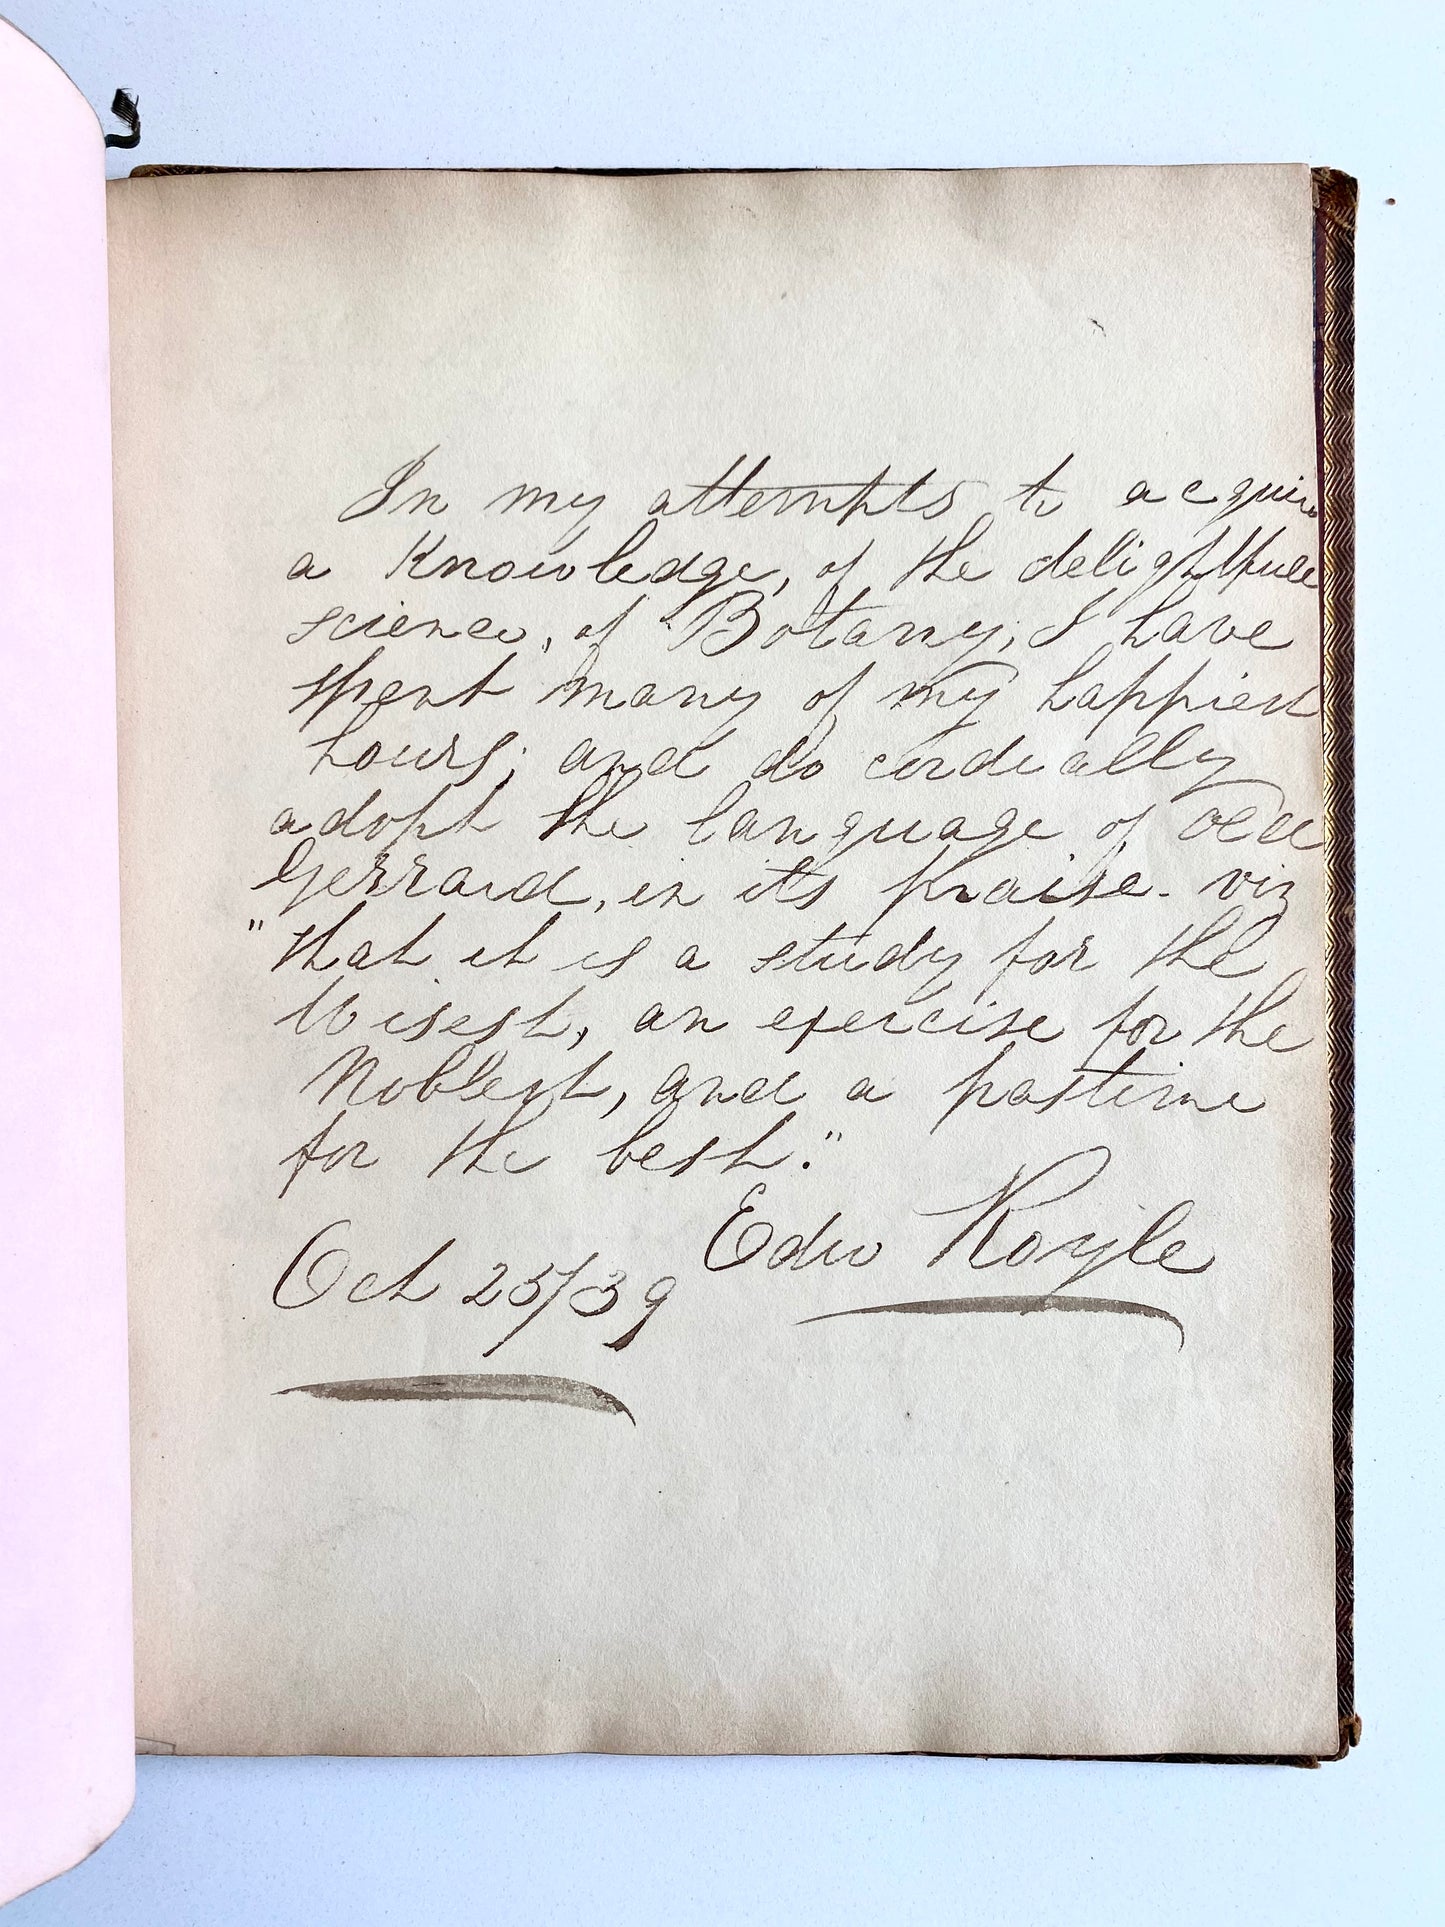 In my attempts to acquire
a Knowledge, of the delightfull
science, of Botany, I have
spent many of my happiest
hours; and do cordially
adopt the language of old
Gerrard, in its praise. viz
"that it is a study for the
Wisest, an exercise for the
Noblest, and a pastime
for the best."
Edw Royle
Oct 25/39